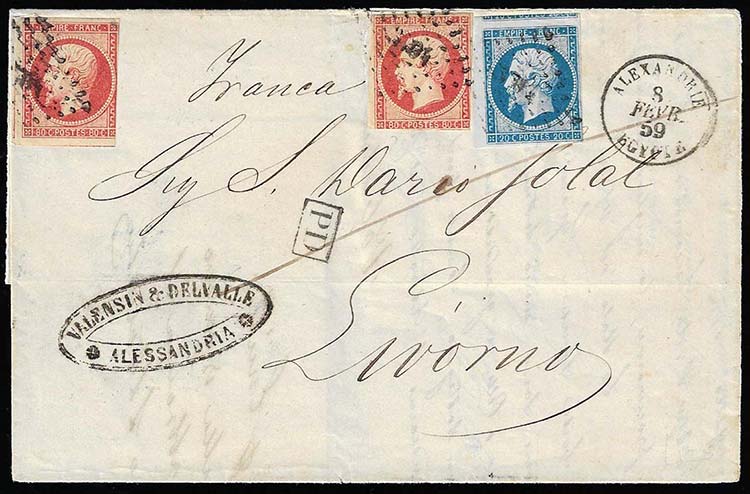 EMPIRE FRANC.
80 C POSTES 80 C
EMPIRE FRANC.
80 C POSTES 80 C
EMPIRE FRANC.
20 C POSTES 20 C
ALEXANDRIE
8
FEVR.
59
EGYPTE
Franca
Sig S. Dario
PD
Livorno
VALENSIN & DELVALLE
ALESSANDRIA